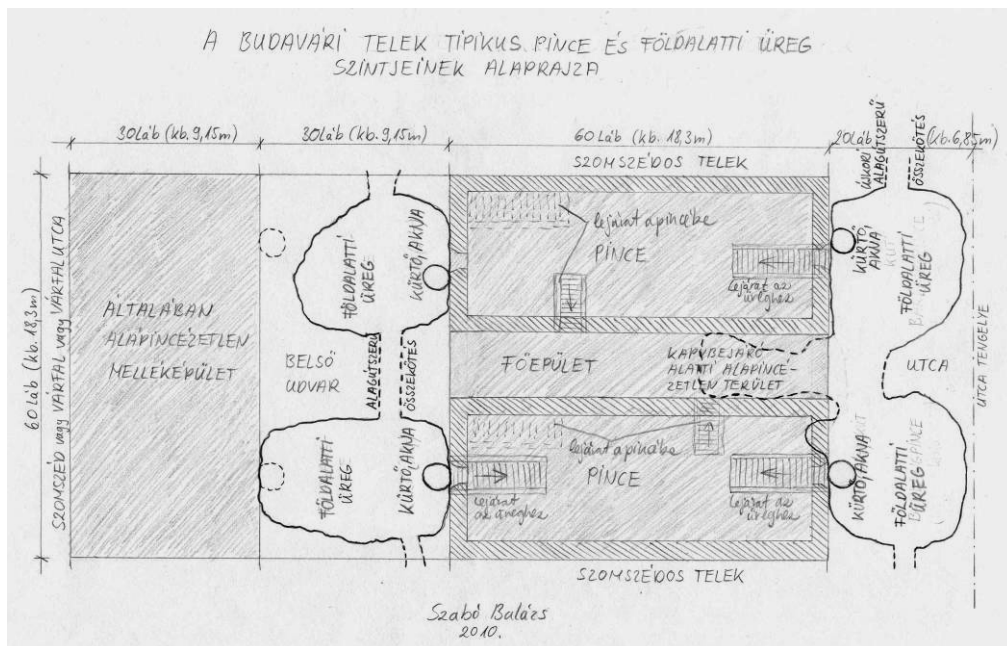 A BUDAVÁRI TELEK TIPIKUS PINCE ÉS FÖLDALATTI ÜREG
SZINTJEINEK ALAPRAJZA
30 Láb (kb. 9,15m)
30 Láb (kb. 9,15m)
60 Láb (kb. 18,3m)
20 Láb
(kb. 6,85m)
SZOMSZÉDOS TELEK
60 Láb (kb. 18,3m)
SZOMSZÉD vagy VÁRFAL vagy VÁRFAL UTCA
ÁLTALÁBAN
ALÁPINCÉZETLEN
MELLÉKÉPÜLET
FÖLDALATTI
ÜREG
KÜRTŐ, AKNA
BELSŐ
UDVAR
ALAGÚTSZERŰ
ÖSSZEKÖTÉS
FÖLDALATTI
ÜREG
KÜRTŐ, AKNA
lejárat a pincébe
PINCE
lejárat az
üreghez
FŐÉPÜLET
KAPUBEJÁRÓ
ALATTI ALÁPINCÉ-
ZETLEN TERÜLET
lejárat a pincébe
PINCE
lejárat
az üreghez
lejárat az
üreghez
ALAGÚTSZERŰ
ÖSSZEKÖTÉS
KÜRTŐ,
AKNA
FÖLDALATTI
ÜREG
UTCA
UTCA TENGELYE
KÜRTŐ, AKNA
FÖLDALATTI
ÜREG
SZOMSZÉDOS TELEK
Szabó Balázs
2010.